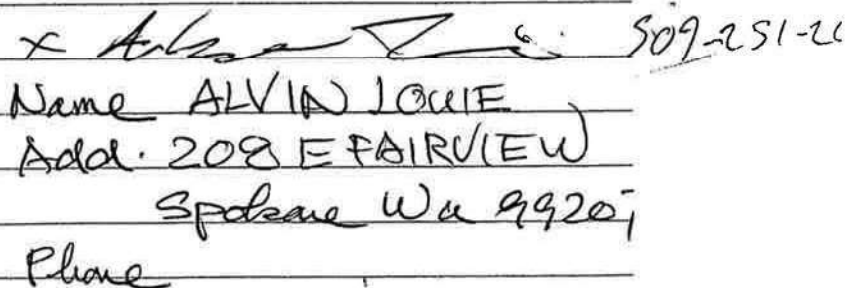 x 509-251-2
Name ALVIN LOUIE
Add. 208 E FAIRVIEW
Spokane Wa 99207
Phone